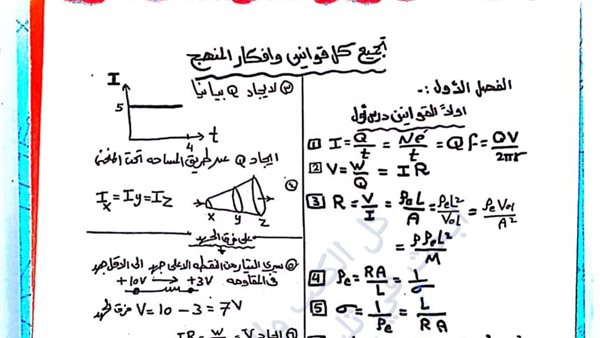 تجميع كل قوانين وافكار المنهج
الفصل الأول :-
اولاً القوانين درس أول
1 I = Q/t = Ne/t = Q f = QV/2πr
2 V = W/Q = I R
3 R = V/I = ρe L/A = ρe L²/Vol = ρe Vol/A²
= ρ ρe L²/M
4 ρe = RA/L = 1/σ
5 σ = 1/ρe = L/RA
لايجاد Q بيانيا
I
5
4
t
ايجاد Q عن طريق المساحه تحت المنحنى
Ix = Iy = Iz
x y z
على فرق الجهد
يسري التيار من النقطه الاعلى جهد الى الاقل جهد
في المقاومه
+10V → +3V
فرق الجهد V = 10 − 3 = 7V